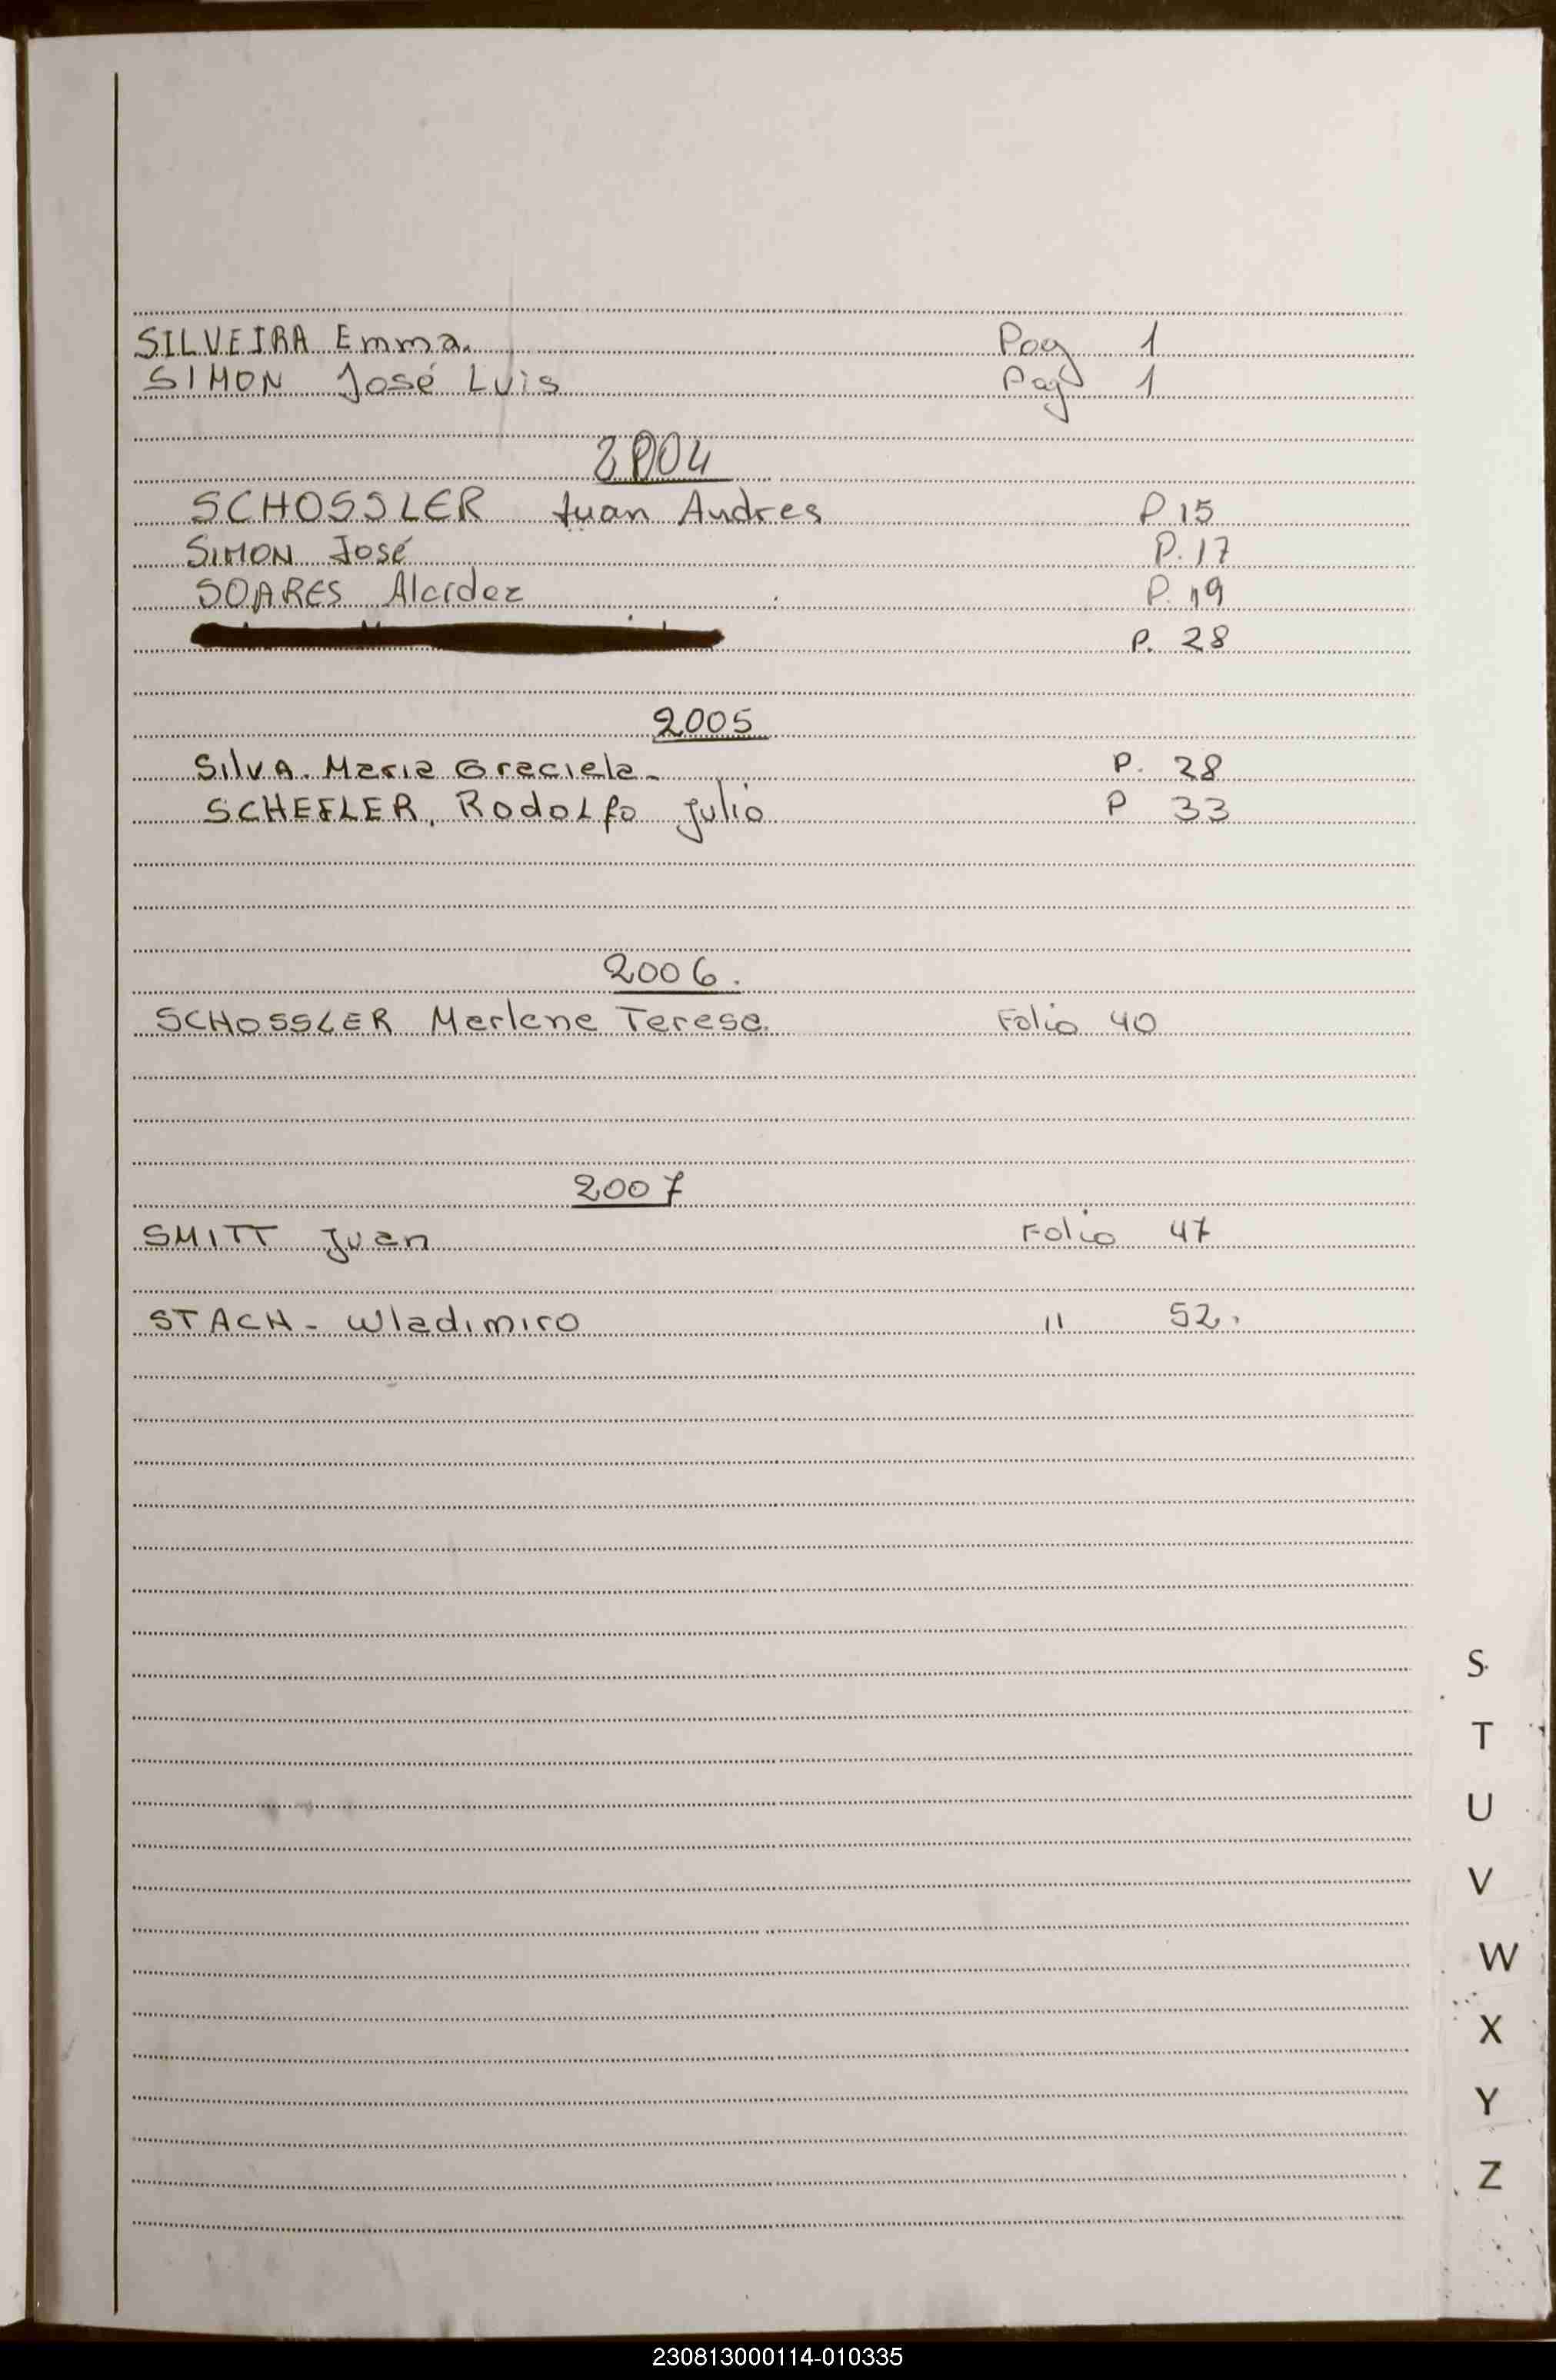 SILVEIRA Emma. Pag 1
SIMON José Luis Pag 1
2004
SCHOSSLER Juan Andres P 15
SIMON José P. 17
SOARES Alcidez P. 19
P. 28
2005
SilvA. Maria Graciela- P. 28
SCHEFLER, Rodolfo Julio P 33
2006.
SCHOSSLER Marlene Teresa. Folio 40
2007
SMITT Juan Folio 47
STACH - Wladimiro " 52.
S
T
U
V
W
X
Y
Z
230813000114-010335